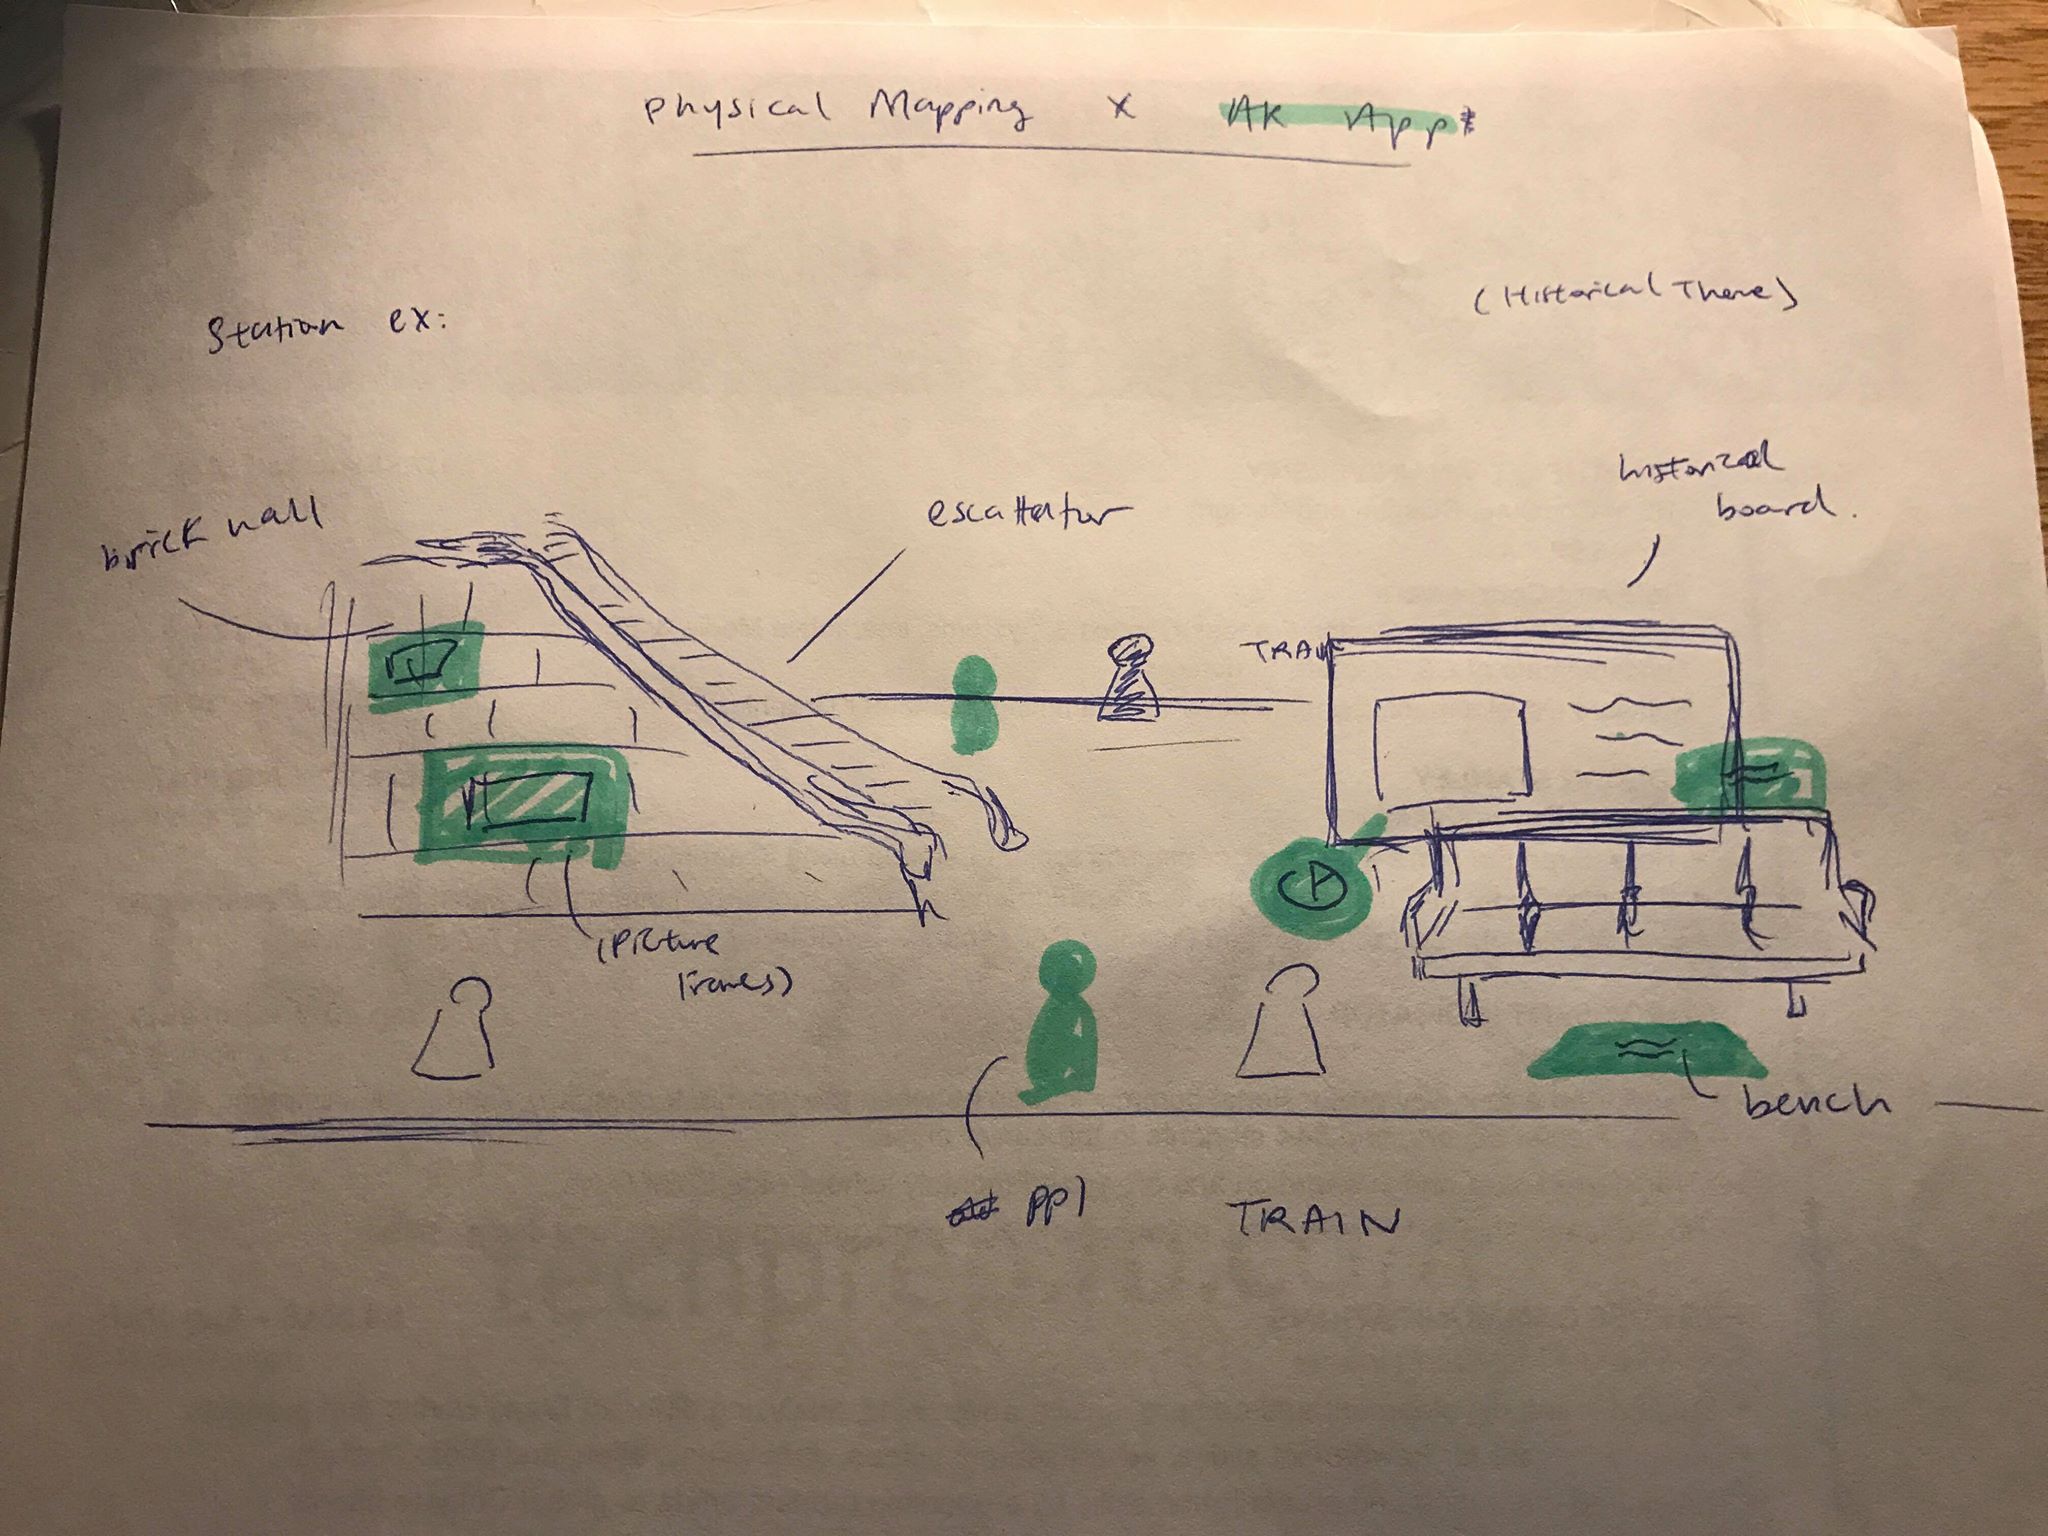 Physical Mapping x AR App
Station ex:
(Historical Theme)
brick wall
escallator
historical
board.
TRAIN
(Picture
frames)
bench
ppl
TRAIN